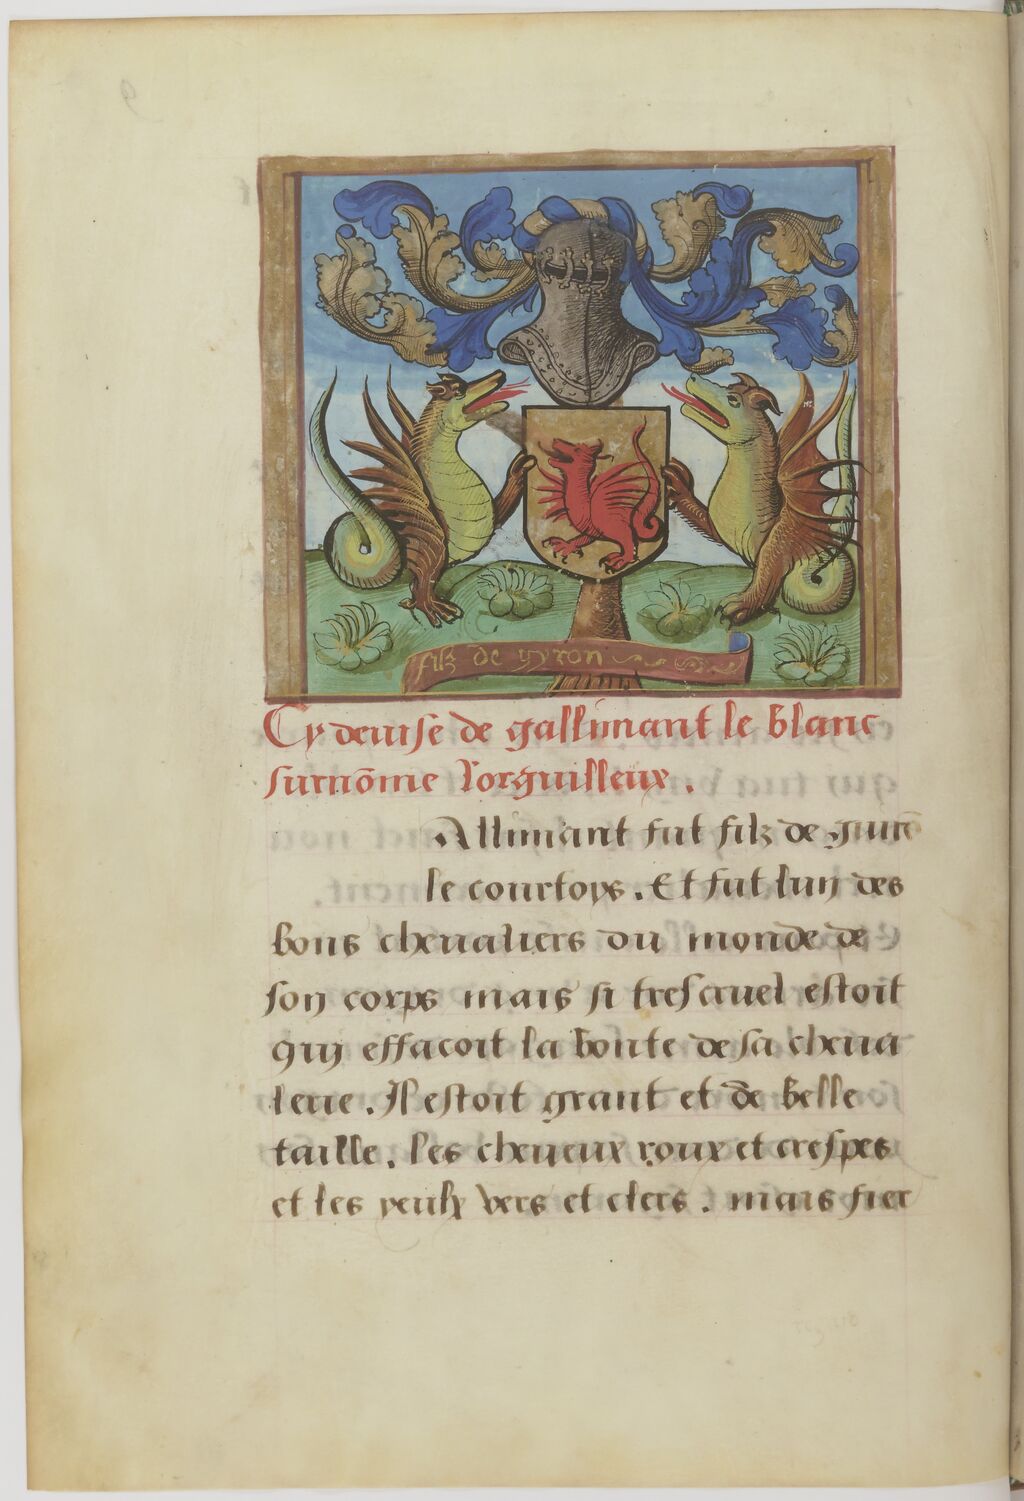 filz de gyron
Cy deuise de gallimant le blanc
surnõme lorguilleux.
Allimant fut filz de guirõ
le courtoys. Et fut lun des
bons cheualiers du monde de
son corps mais si trescruel estoit
quij effacoit la bonte de sa cheua
lerie. Il estoit grant et de belle
taille. les cheueux roux et crespes
et les yeulx vers et clers. mais fier